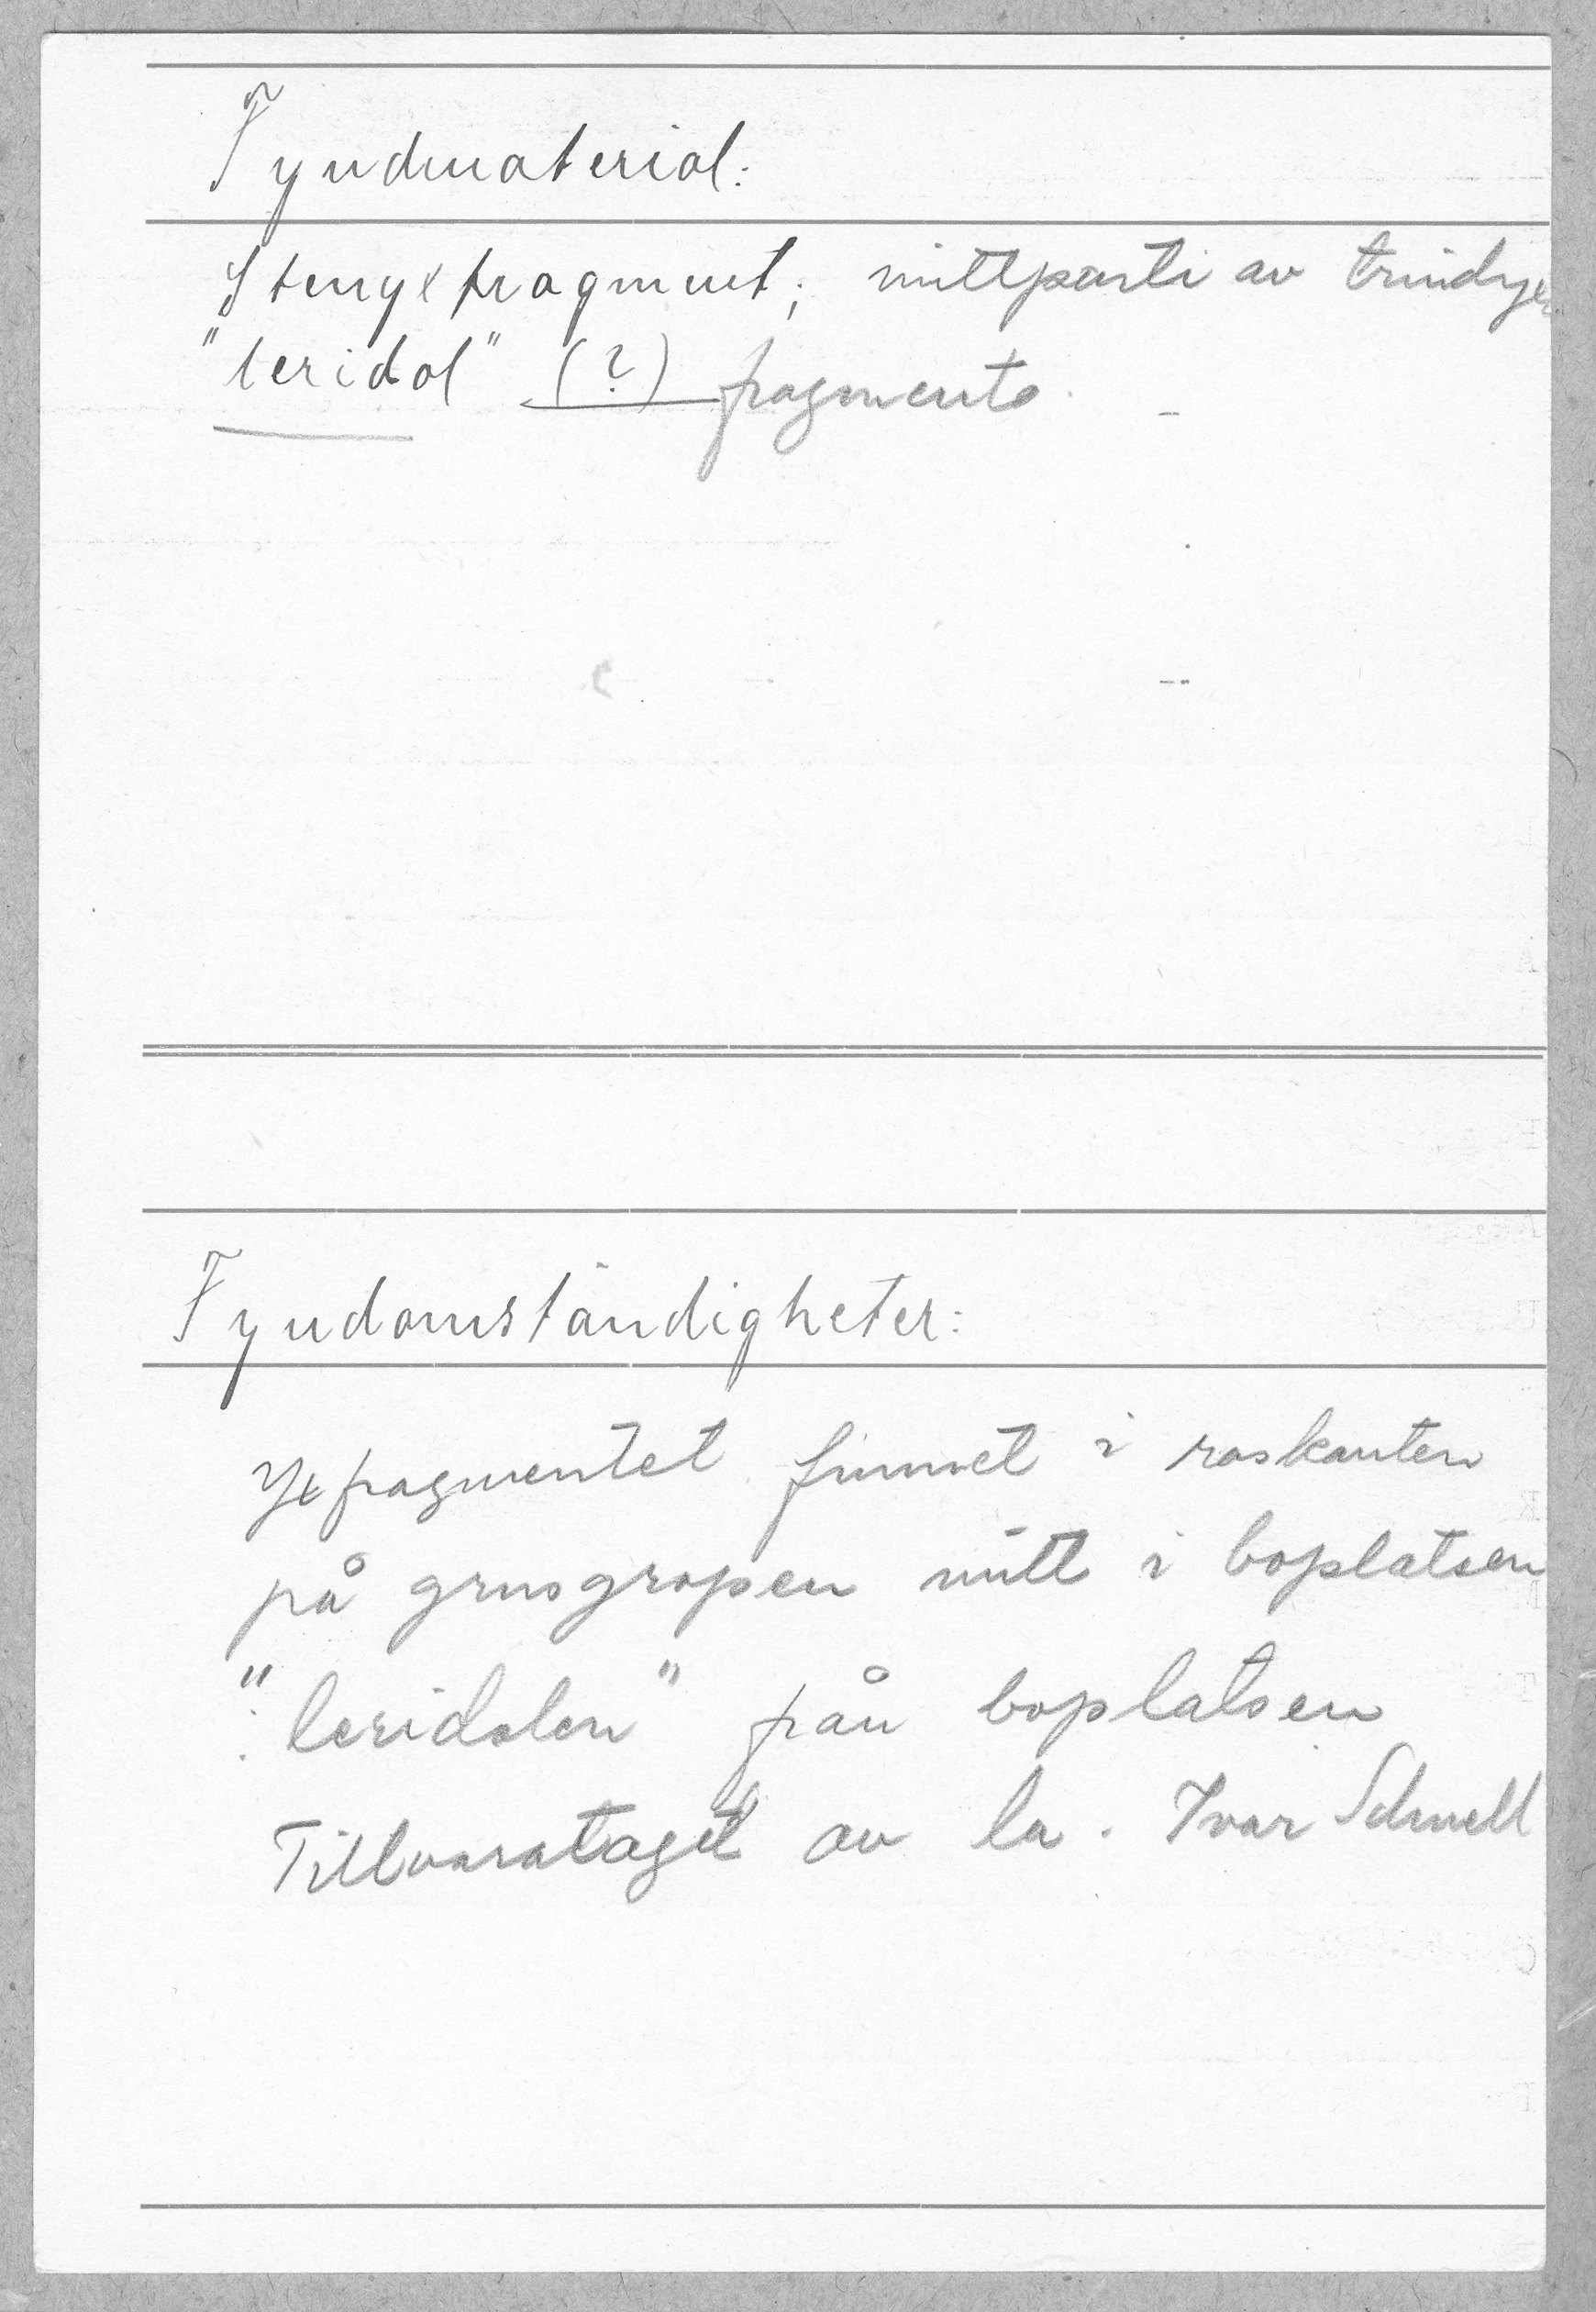 Fyndmaterial:
Stenyxfragment; mittparti av trindyx
"leridol" (?) fragment
Fyndomständigheter:
Yxfragmentet funnet i raskanten
på grusgropen mitt i boplatsen
"leridolen" från boplatsen
Tillvarataget av la. Ivar Schnell